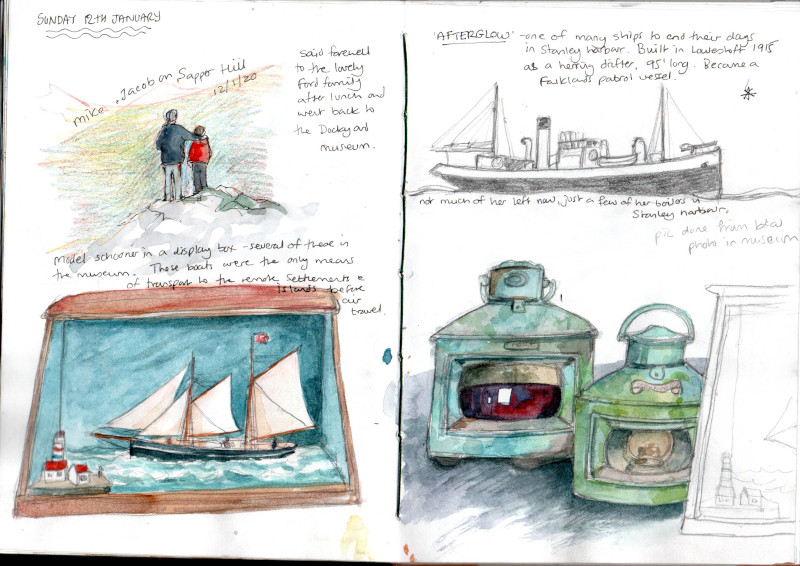 SUNDAY 12TH JANUARY
Mike, Jacob on Sapper Hill
12/1/20
Said farewell
to the lovely
Ford family
after lunch and
went back to
the Dockyard
museum.
Model schooner in a display box - several of these in
the museum. These boats were the only means
of transport to the remote settlements &
islands before
air
travel.
'AFTERGLOW' - one of many ships to end their days
in Stanley harbour. Built in Lowestoft 1918
as a herring drifter, 95' long. Became a
Falklands patrol vessel.
not much of her left now, just a few of her boilers in
Stanley harbour.
pic done from b&w
photo in museum